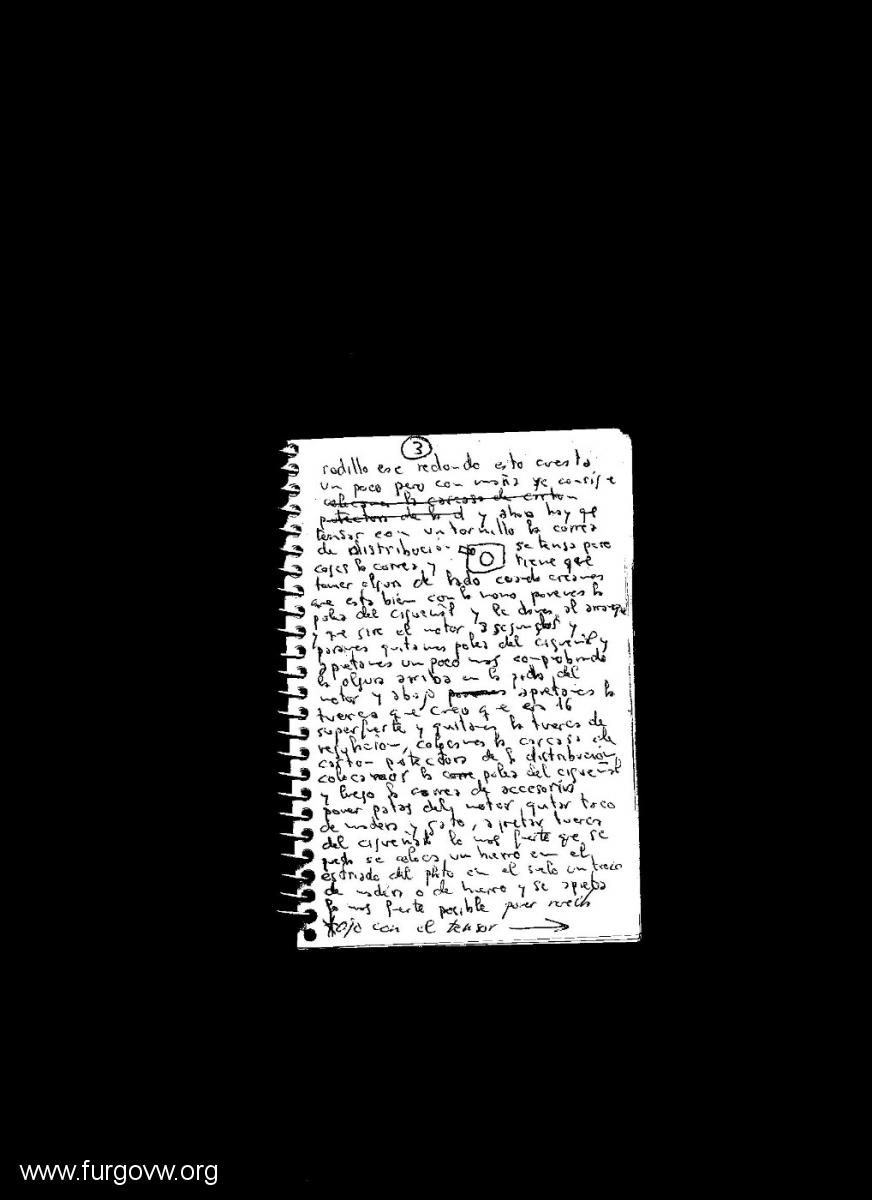 3
rodillo ese redondo esto cuesta
un poco pero con maña se consige
colocamos la carcasa de carton
protectora de la d y ahora hay que
tensar con un tornillo la correa
de distribución se tensa pero
coges la correa y tiene que
tener algun de lado cuando creamos
que esta bien con la mano ponemos la
polea del cigueñal y le damos al arranque
y que gire el motor 3 segundos y
paramos quitamos polea del cigueñal y
apretamos un poco mas comprobando
la olgura arriba en la del
motor y abajo apretamos la
tuerca que creo que es 16
superfuerte y quitamos la tuerca de
regulacion, colocamos la carcasa de
carton protectora de la distribución
colocamos la polea del cigueñal
y luego la correa de accesorios
poner patas del motor, quitar taco
de madera y gato, apretar tuerca
del cigueñal lo mas fuerte que se
pueda se coloca un hierro en el
estriado del plato en el suelo un
de madera o de hierro y se aprieta
lo mas fuerte posible poner
con el tensor →
www.furgovw.org